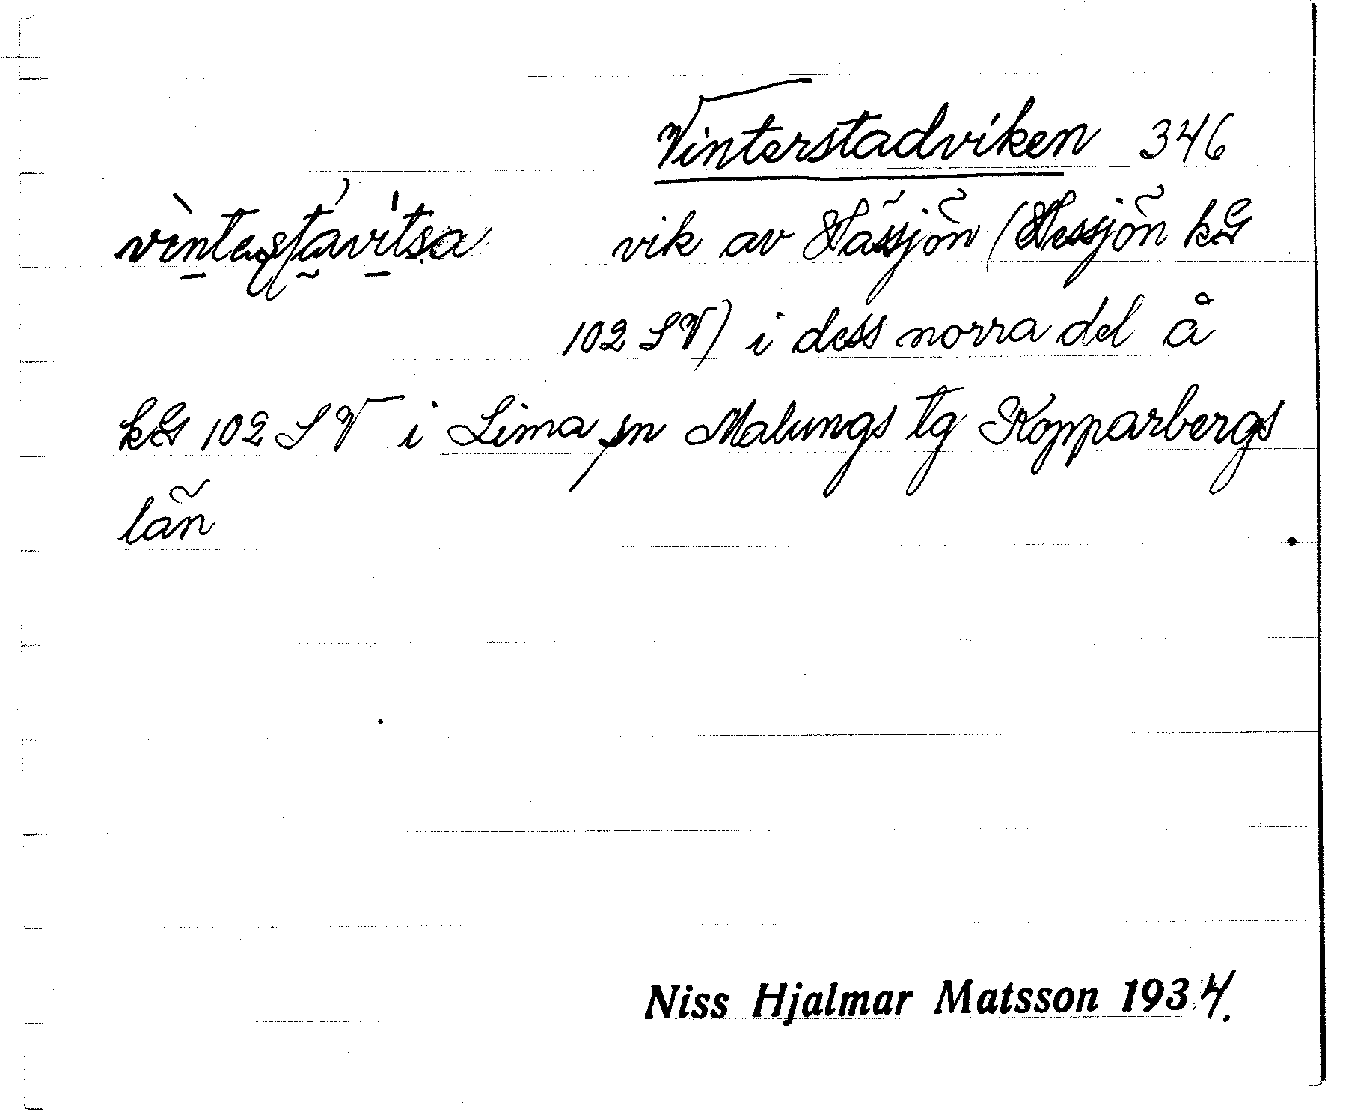 Vinterstadviken 346
vintastavitsa vik av Nässjön (Nessjön kG
102 SV) i dess norra del å
kG 102 SV i Lima sn Malungs tg Kopparbergs
län
Niss Hjalmar Matsson 1934.